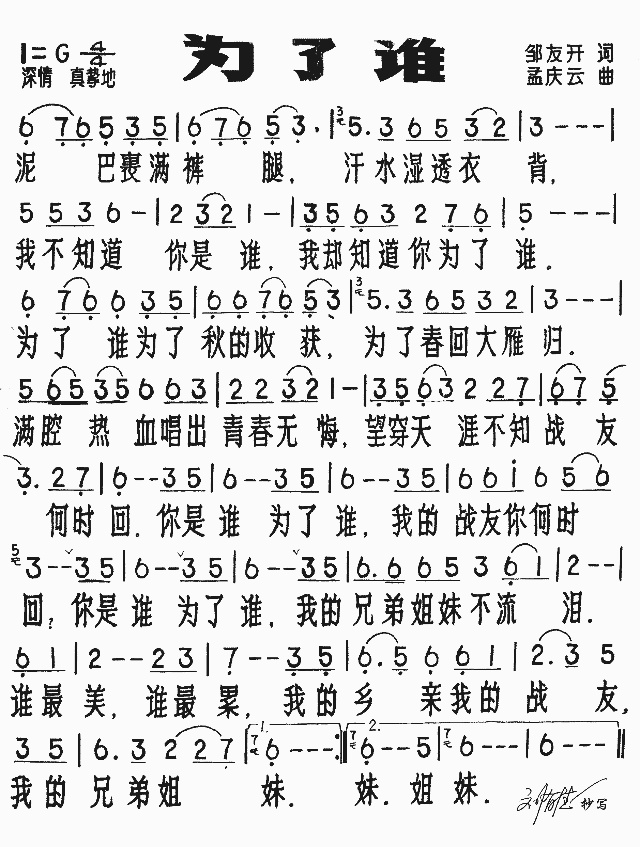 1=G 4/4 为了谁 邹友开 词
深情 真挚地 孟庆云 曲
6 76535 | 6 76 5 3. | 3 5. 3 6 5 32 | 3 - - - |
泥 巴裹满裤 腿，汗水湿透衣 背，
5 53 6 - | 2 32 1 - | 35 63 2 76 | 5 - - - |
我不知道 你是 谁，我却知道你为了 谁．
6 76 6 35 | 66 76 53 | 3 5. 3 6532 | 3 - - - |
为了 谁为了 秋的收 获，为了春回大雁 归．
5 65 35 6 63 | 2 23 32 1 - | 35 63 2 27 | 67 5
满腔 热 血唱出 青春无 悔，望穿天 涯不知 战 友
3. 27 | 6 - - 35 | 6 - - 35 | 6 - - 35 | 66 i 6 56
何时 回．你是 谁 为了 谁，我的 战友你何时
5 3 - - 35 | 6 - - 35 | 6 - - 35 | 6. 6 65 3 61 | 2 - - |
回；你是 谁 为了 谁，我的 兄弟姐妹不流 泪．
61 | 2 - - 23 | 7 - - 35 | 6. 5 6 61 | 2. 3 5
谁最 美，谁最 累，我的 乡 亲我的 战 友，
35 | 6. 3 2 27 | 1. 7 6 - - :‖ 2. 7 6 - - 5 | 7 6 - - - | 6 - - - ‖
我的 兄弟姐 妹．妹．姐 妹．
抄写